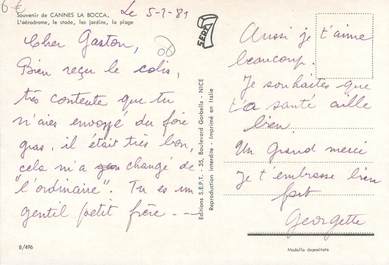 6 €
Souvenir de CANNES LA BOCCA,
L'aérodrome, le stade, les jardins, la plage
Le 5-1-81
Cher Gaston,
Bien reçu le colis,
très contente que tu
m'aies envoyé du foie
gras, il était très bon,
cela m'a changé de
l'ordinaire". Tu es un
gentil petit frère - --
8/496
SEPT
Editions S.E.P.T. - 35, Boulevard Gorbella - NICE
Reproduction interdite - Imprimé en Italie
Aussi je t'aime
beaucoup.
Je souhaites que
ta santé aille
bien.
Un Grand merci
Je t'embrasse bien
fort
Georgette
Modello depositato